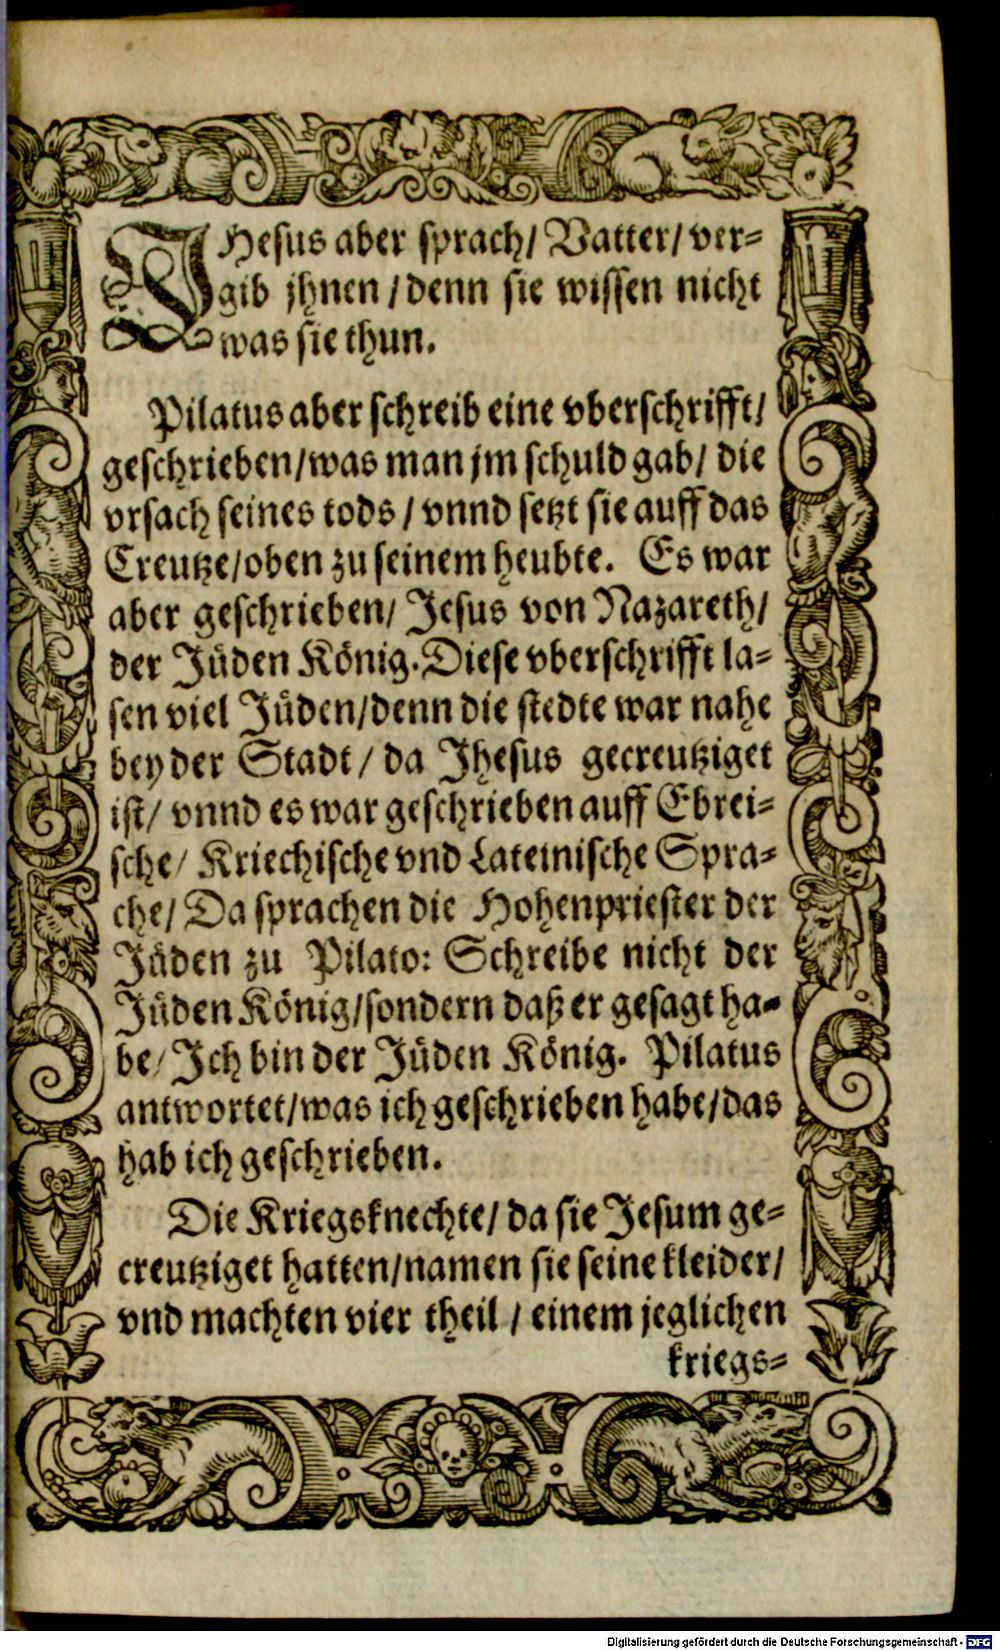 JHesus aber sprach/ Vatter/ ver=
gib jhnen/denn sie wissen nicht
was sie thun.
Pilatus aber schreib eine vberschrifft/
geschrieben/was man jm schuld gab/ die
vrsach seines tods/ vnnd setzt sie auff das
Creutze/oben zu seinem heubte. Es war
aber geschrieben/ Jesus von Nazareth/
der Jüden König. Diese vberschrifft la=
sen viel Jüden/denn die stedte war nahe
bey der Stadt/ da Jhesus gecreutziget
ist/ vnnd es war geschrieben auff Ebrei=
sche/ Kriechische vnd Lateinische Spra=
che/ Da sprachen die Hohenpriester der
Jüden zu Pilato: Schreibe nicht der
Jüden König/sondern daß er gesagt ha=
be/ Jch bin der Jüden König. Pilatus
antwortet/was ich geschrieben habe/das
hab ich geschrieben.
Die Kriegsknechte/ da sie Jesum ge=
creutziget hatten/namen sie seine kleider/
vnd machten vier theil/ einem jeglichen
kriegs=
Digitalisierung gefördert durch die Deutsche Forschungsgemeinschaft - DFG